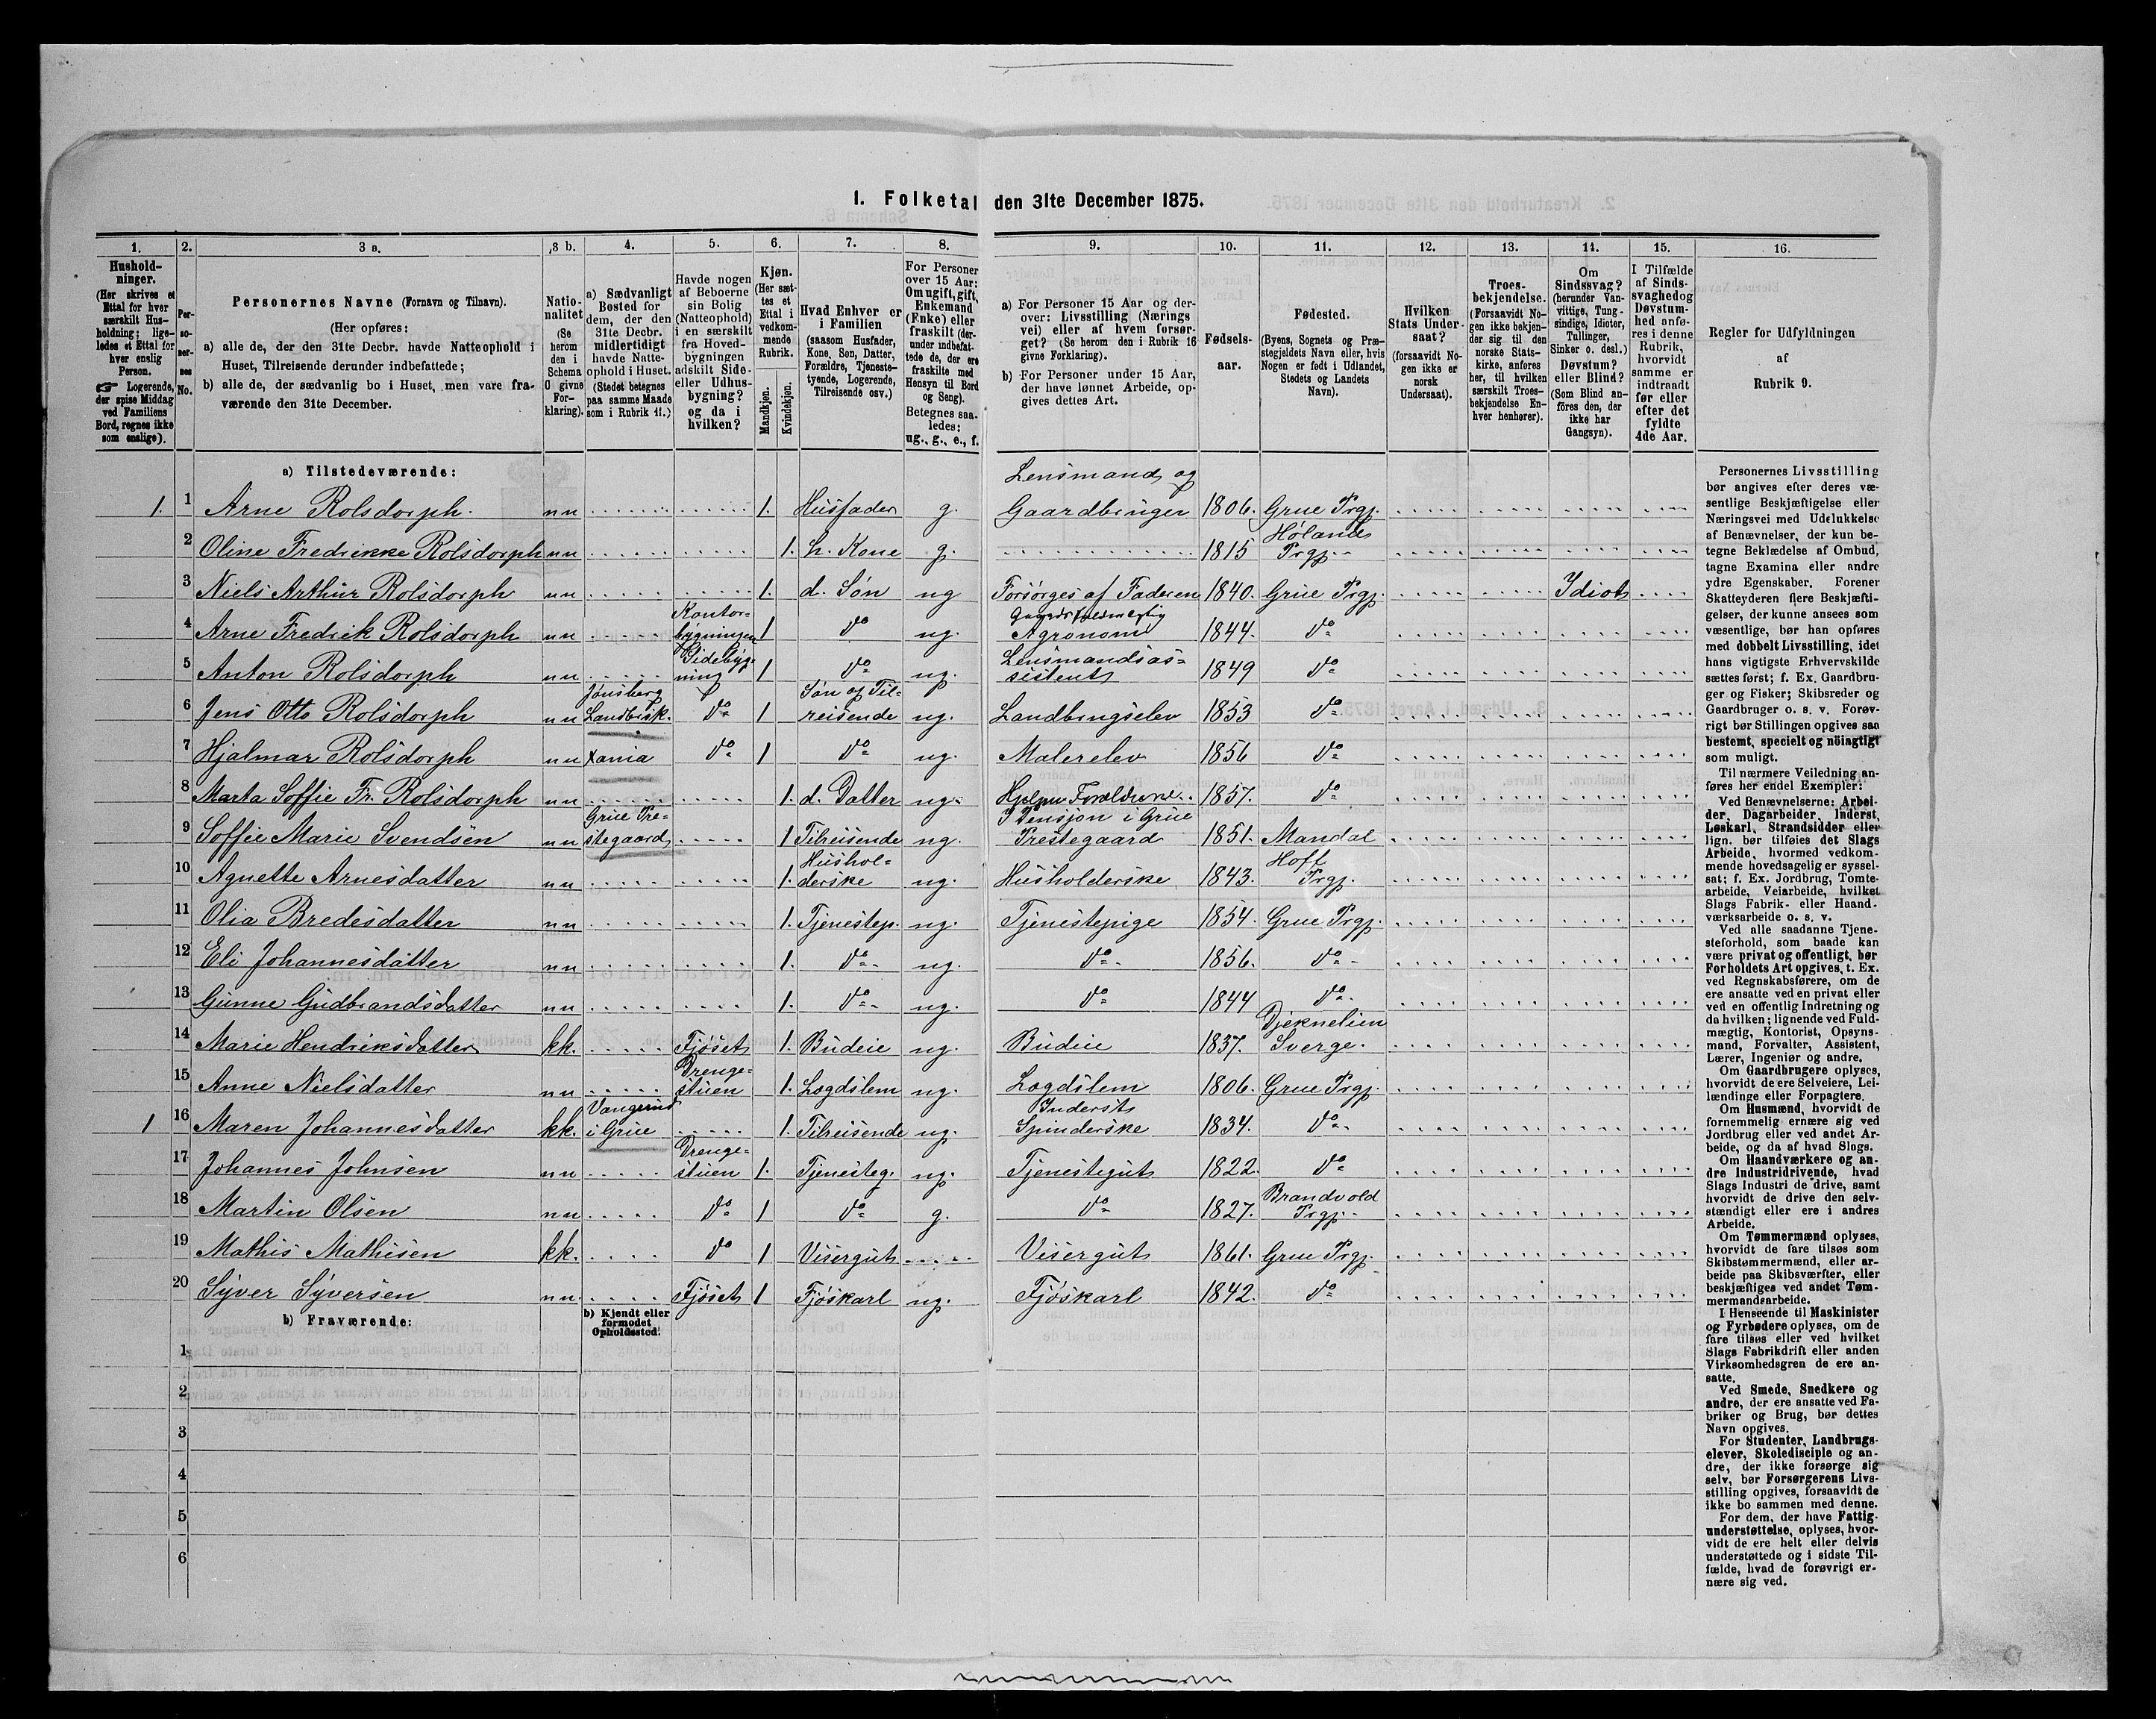 1. Folketal den 31te December 1875.
1. 2. 3 a. 3 b. 4. 5. 6. 7. 8. 9. 10. 11. 12. 13. 14. 15. 16.
Hushold-
ninger.
(Her skrives et
Ettal for hver
særskilt Hus-
holdning; lige-
ledes et Ettal for
hver enslig
Person.
☞ Logerende,
der spise Middag
ved Familiens
Bord, regnes ikke
som enslige).
Per-
so-
ner-
nes
No.
Personernes Navne (Fornavn og Tilnavn).
(Her opføres:
a) alle de, der den 31te Decbr. havde Natteophold i
Huset, Tilreisende derunder indbefattede;
b) alle de, der sædvanlig bo i Huset, men vare fra-
værende den 31te December.
Natio-
nalitet
(Se
herom
den i
Schema
O givne
For-
klaring).
a) Sædvanligt
Bosted for
dem, der den
31te Decbr.
midlertidigt
havde Natte-
ophold i Huset.
(Stedet betegnes
paa samme Maade
som i Rubrik 11.)
Havde nogen
af Beboerne
sin Bolig
(Natteophold)
i en særskilt
fra Hoved-
bygningen
adskilt Side-
eller Udhus-
bygning?
og da i
hvilken?
Kjøn.
(Her sæt-
tes et
Ettal i
vedkom-
mende
Rubrik.
Mandkjøn.
Kvindekjøn.
Hvad Enhver er
i Familien
(saasom Husfader,
Kone, Søn, Datter,
Forældre, Tjeneste-
tyende, Logerende,
Tilreisende osv.)
For Personer
over 15 Aar:
Om ugift, gift,
Enkemand
(Enke) eller
fraskilt (der-
under indbefat-
tede de, der ere
fraskilte med
Hensyn til Bord
og Seng).
Betegnes saa-
ledes:
ug., g., e., f.
a) For Personer 15 Aar og der-
over: Livsstilling (Nærings
vei) eller af hvem forsør-
get? (Se herom den i Rubrik 16
givne Forklaring).
b) For Personer under 15 Aar,
der have lønnet Arbeide, op-
gives dettes Art.
Fødsels-
aar.
Fødested.
(Byens, Sognets og Præ-
stegjeldets Navn eller, hvis
Nogen er født i Udlandet,
Stedets og Landets
Navn).
Hvilken
Stats Under-
saat?
(forsaavidt No-
gen ikke er
norsk
Undersaat).
Troes-
bekjendelse.
(Forsaavidt No-
gen ikke bekjen-
der sig til den
norske Stats-
kirke, anføres
her, til hvilken
særskilt Troes-
bekjendelse En-
hver henhører).
Om
Sindssvag?
(herunder Van-
vittige, Tung-
sindige, Idioter,
Tullinger,
Sinker o. desl.)
Døvstum?
eller Blind?
(Som Blind an-
föres den, der
ikke har
Gangsyn).
I Tilfælde
af Sinds-
svaghed og
Døvstum-
hed anfø-
res i denne
Rubrik,
hvorvidt
samme er
indtraadt
før eller
efter det
fyldte
4de Aar.
Regler for Udfyldningen
af
Rubrik 9.
a) Tilstedeværende:
Lensmand og
1. 1 Arne Rolsdorph. nn 1. Husfader g. Gaardbruger 1806. Grue Prgj.
Hølands
2 Oline Fredrikke Rolsdorph nn 1. h. Kone g. 1815 Prgj.
3 Niels Arthur Rolsdorph nn 1. d. Søn ug Forsørges af Faderen 1840. Grue Prgj. Idiot
Kontor-
4 Arne Fredrik Rolsdorph nn bygningen 1 do ug. Agronom 1844. do
Sidebyg- Lensmandsas-
5 Anton Rolsdorph nn ning 1 do ug. sistent 1849 do
Jønsberg Søn og Til-
6 Jens Otto Rolsdorph nn Landbrsk. do 1 reisende ug. Landbrugselev 1853 do
7 Hjalmar Rolsdorph nn Xania do 1 do ug. Malerelev 1856 do
8 Marta Soffie Fr. Rolsdorph nn 1. d. Datter ug. Hjelper Forældrene. 1857. do
Grue Pre- I Pensjon i Grue
9 Soffie Marie Svendsen nn stegaard 1 Tilreisende ug. Prestegaard 1851. Mandal
Hushol- Hoff
10 Agnette Arnesdatter nn 1. derske ug. Husholderske 1843. Prgj.
11 Olia Bredesdatter nn 1. Tjenestep. ug. Tjenestepige 1854. Grue Prgj.
12 Eli Johannesdatter nn 1. do ug. do 1856. do
13 Gunne Gudbrandsdatter nn 1. do ug. do 1844 do
14 Marie Hendriksdatter kk. Fjøset 1. Budeie ug. Budeie 1837. Sverge.
Drenge-
15 Anne Nielsdatter nn stuen 1. Lægdslem ug. Lægdslem 1806. Grue Prgj.
Inderst
1 16 Maren Johannesdatter kk. i Grue 1. Tilreisende ug. Spinderske 1834. do
Drenge-
17 Johannes Johnsen nn stuen 1. Tjenesteg. ug. Tjenestegut 1822. do
Brandvold
18 Martin Olsen nn do 1 do g. do 1827. Prgj.
19 Mathis Mathisen kk. do 1 Visergut Visergut 1861. Grue Prgj.
20 Syver Syversen nn. Fjøset 1 Fjøskarl ug. Fjøskarl 1842. do
b) Fraværende:
b) Kjendt eller
formodet
Opholdssted.
1
2
3
4
5
6
Personernes Livsstilling
bør angives efter deres væ-
sentlige Beskjæftigelse eller
Næringsvei med Udelukkelse
af Benævnelser, der kun be-
tegne Beklædelse af Ombud,
tagne Examina eller andre
ydre Egenskaber. Forener
Skatteyderen flere Beskjæfti-
gelser, der kunne ansees som
væsentlige, bør han opføres
med dobbelt Livsstilling, idet
hans vigtigste Erhvervskilde
sættes først; f. Ex. Gaardbru-
ger og Fisker; Skibsreder og
Gaardbruger o. s. v. Forøv-
rigt bør Stillingen opgives saa
bestemt, specielt og nöiagtigt
som muligt.
Til nærmere Veiledning an-
føres her endel Exempler:
Ved Benævnelserne: Arbei-
der, Dagarbeider, Inderst,
Løskarl, Strandsidder eller
lign. bør tilføies det Slags
Arbeide, hvormed vedkom-
mende hovedsagelig er syssel-
sat; f. Ex. Jordbrug, Tomte-
arbeide, Veiarbeide, hvilket
Slags Fabrik- eller Haand-
værksarbeide o. s. v.
Ved alle saadanne Tjene-
steforhold, som baade kan
være privat og offentligt, bør
Forholdets Art opgives, t. Ex.
ved Regnskabsførere, om de
ere ansatte ved en privat eller
ved en offentlig Indretning og
da hvilken; lignende ved Fuld-
mægtig, Kontorist, Opsyns-
mand, Forvalter, Assistent,
Lærer, Ingeniør og andre.
Om Gaardbrugere oplyses,
hvorvidt de ere Selveiere, Lei-
lændinge eller Forpagtere.
Om Husmænd, hvorvidt de
fornemmelig ernære sig ved
Jordbrug eller ved andet Ar-
beide, og da af hvad Slags.
Om Haandværkere og an-
dre Industridrivende, hvad
Slags Industri de drive, samt
hvorvidt de drive den selv-
stændigt eller ere i andres
Arbeide.
Om Tømmermænd oplyses,
hvorvidt de fare tilsøs som
Skibstømmermænd, eller ar-
beide paa Skibsværfter, eller
beskjæftiges ved andet Tøm-
mermandsarbeide.
I Henseende til Maskinister
og Fyrbødere oplyses, om de
fare tilsøs eller ved hvilket
Slags Fabrikdrift eller anden
Virksomhedsgren de ere an-
satte.
Ved Smede, Snedkere og
andre, der ere ansatte ved Fa-
briker og Brug, bør dettes
Navn opgives.
For Studenter, Landbrugs-
elever, Skoledisciple og an-
dre, der ikke forsørge sig
selv, bør Forsørgerens Livs-
stilling opgives, forsaavidt de
ikke bo sammen med denne.
For dem, der have Fattig-
understøttelse, oplyses, hvor-
vidt de ere helt eller delvis
understøttede og i sidste Til-
fælde, hvad de forøvrigt er-
nære sig ved.